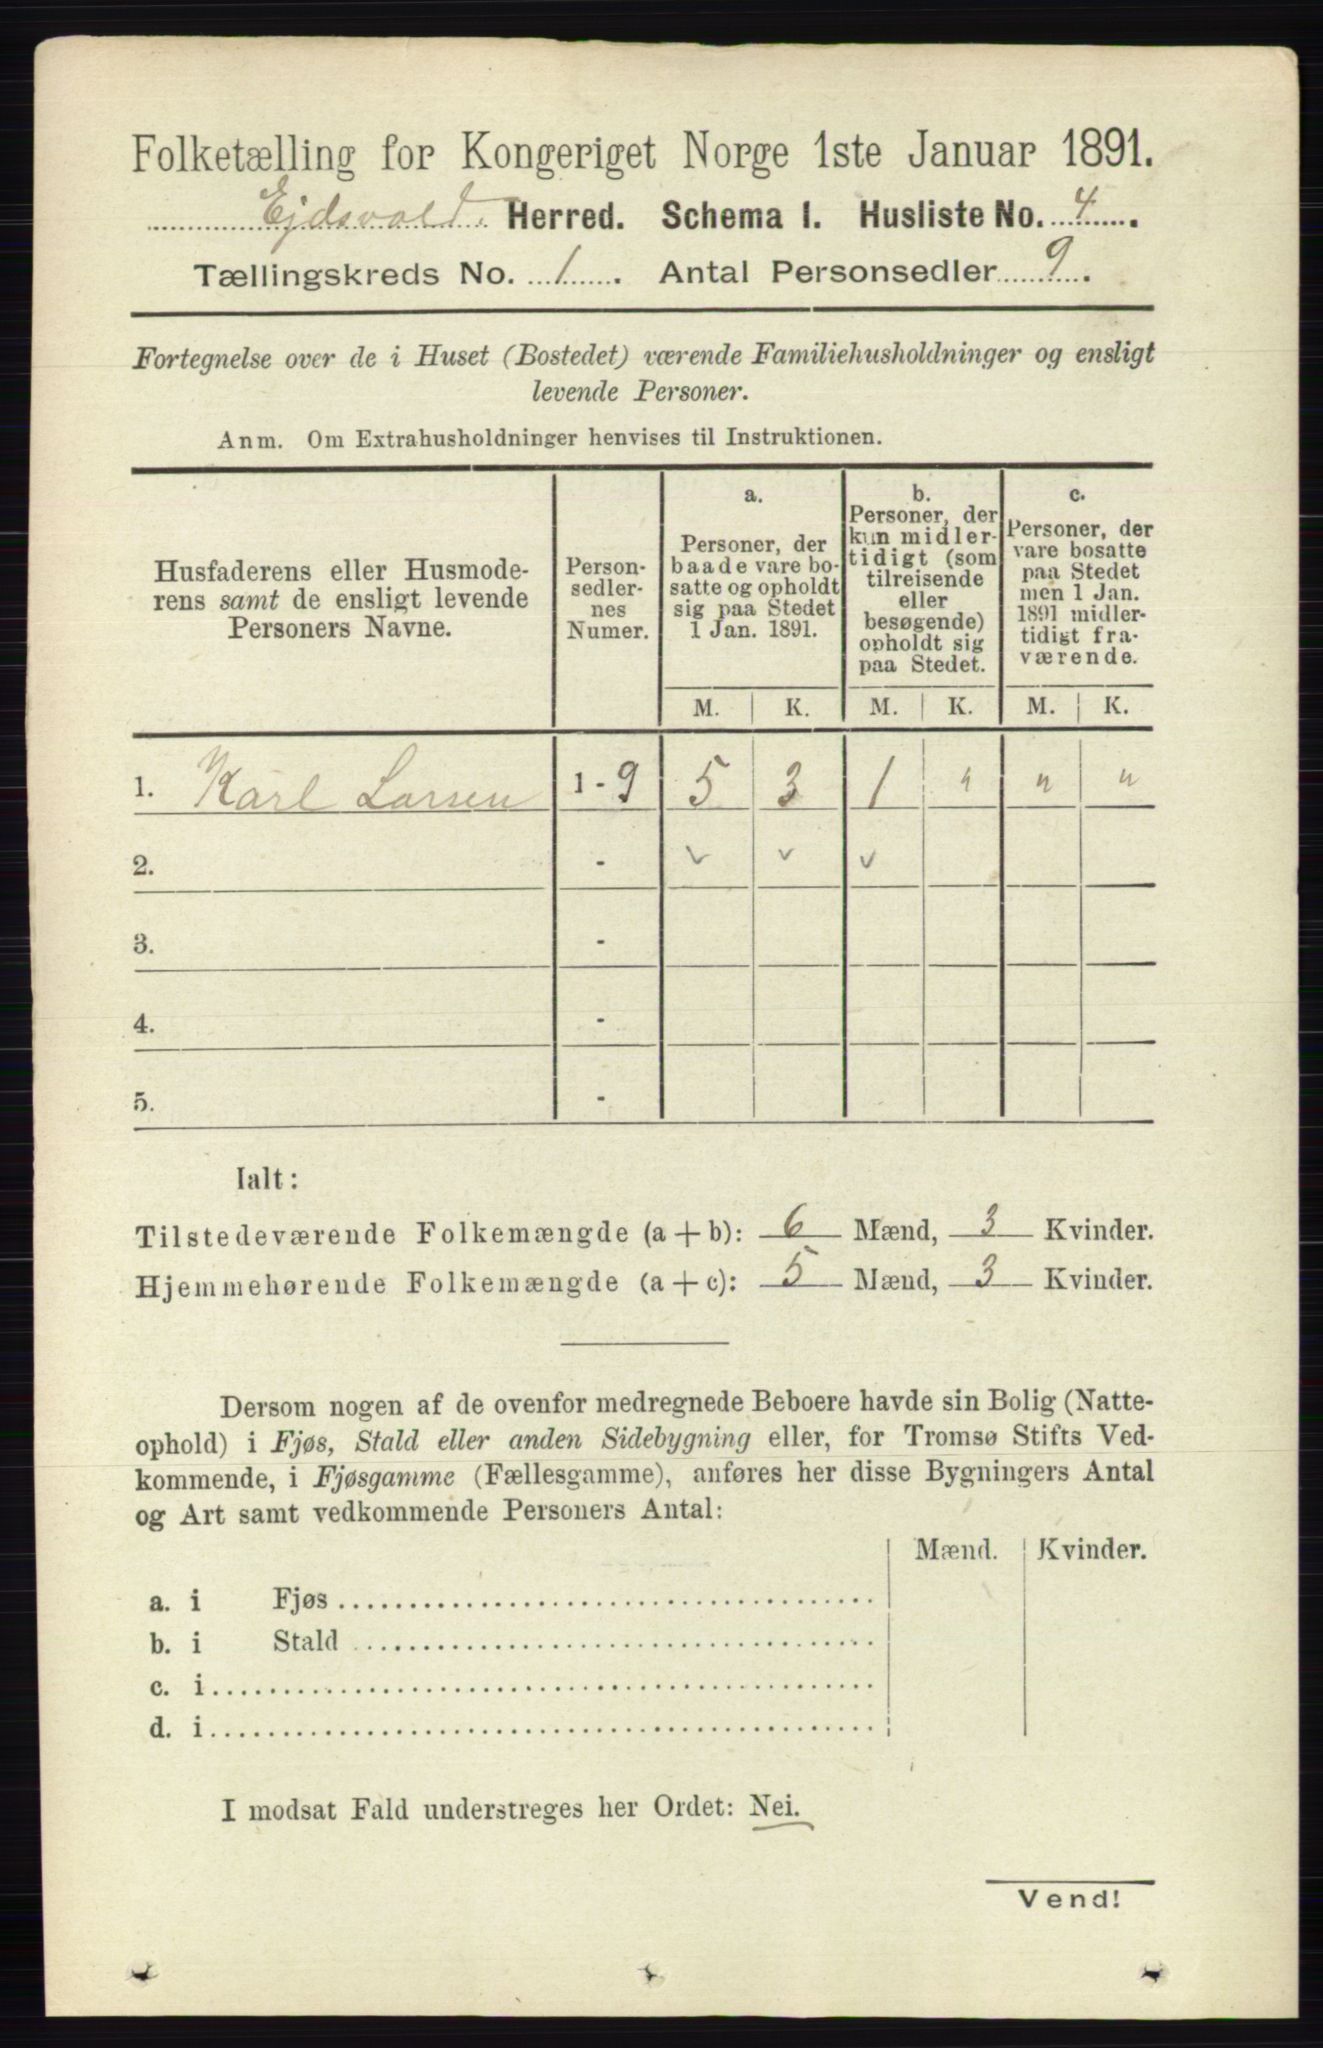 Folketælling for Kongeriget Norge 1ste Januar 1891.
Ejdsvold Herred. Schema I. Husliste No. 4.
Tællingskreds No. 1. Antal Personsedler 9.
Fortegnelse over de i Huset (Bostedet) værende Familiehusholdninger og ensligt
levende Personer.
Anm. Om Extrahusholdninger henvises til Instruktionen.
Husfaderens eller Husmode-
rens samt de ensligt levende
Personers Navne.
Person-
sedler-
nes
Numer.
a.
Personer, der
baade vare bo-
satte og opholdt
sig paa Stedet
1 Jan. 1891.
b.
Personer, der
kun midler-
tidigt (som
tilreisende
eller
besøgende)
opholdt sig
paa Stedet.
c.
Personer, der
vare bosatte
paa Stedet
men 1 Jan.
1891 midler-
tidigt fra-
værende.
M. K. M. K. M. K.
1. Karl Larsen 1 - 9 5 3 1 " " "
2. - ✓ ✓ ✓
3. -
4. -
5. -
Ialt:
Tilstedeværende Folkemængde (a + b): 6 Mænd, 3 Kvinder.
Hjemmehørende Folkemængde (a + c): 5 Mænd, 3 Kvinder.
Dersom nogen af de ovenfor medregnede Beboere havde sin Bolig (Natte-
ophold) i Fjøs, Stald eller anden Sidebygning eller, for Tromsø Stifts Ved-
kommende, i Fjøsgamme (Fællesgamme), anføres her disse Bygningers Antal
og Art samt vedkommende Personers Antal:
Mænd. Kvinder.
a. i Fjøs
b. i Stald
c. i
d. i
I modsat Fald understreges her Ordet: Nei.
Vend!